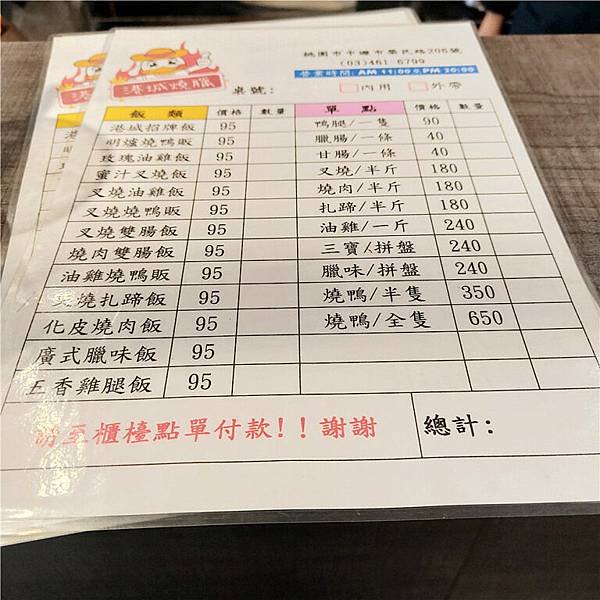 港城燒臘
桃園市中壢市榮民路206號
(03)461-6799
營業時間: AM 11:00 PM 20:00
桌號:
內用 外帶
飯 類 價格 數量 單 點 價格 數量
港城招牌飯 95 鴨腿/一隻 90
明爐燒鴨販 95 臘腸/一條 40
玫瑰油雞飯 95 甘腸/一條 40
蜜汁叉燒飯 95 叉燒/半斤 180
叉燒油雞飯 95 燒肉/半斤 180
叉燒燒鴨販 95 扎蹄/半斤 180
叉燒雙腸飯 95 油雞/一斤 240
燒肉雙腸飯 95 三寶/拼盤 240
油雞燒鴨販 95 臘味/拼盤 240
燒扎蹄飯 95 燒鴨/半隻 350
化皮燒肉飯 95 燒鴨/全隻 650
廣式臘味飯 95
五香雞腿飯 95
請至櫃檯點單付款!!謝謝 總計: